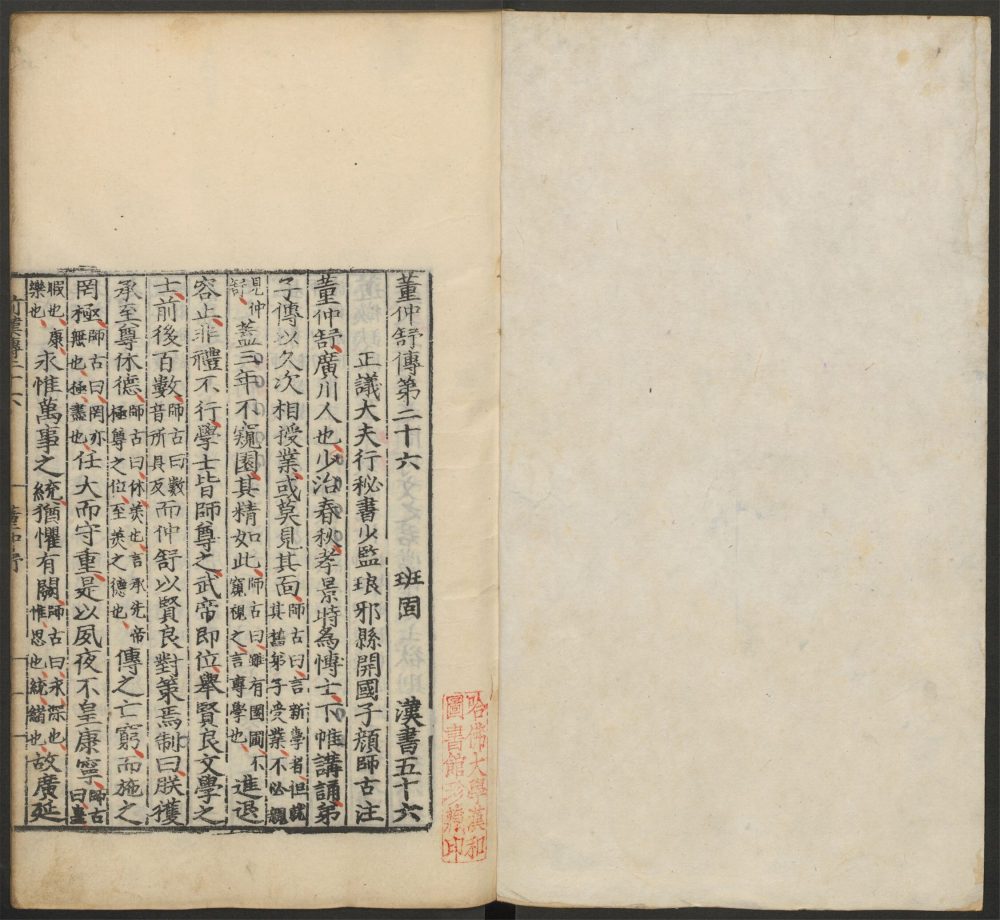 董仲舒傳第二十六 班固 漢書五十六
正議大夫行秘書少監琅邪縣開國子顔師古注
董仲舒廣川人也少治春秋孝景時爲博士下帷講誦弟
子傳以久次相授業或莫見其面師古曰言新學者但就其舊弟子受業不必親
見仲舒蓋三年不窺園其精如此師古曰雖有園圃不窺視之言專學也進退
容止非禮不行學士皆師尊之武帝即位舉賢良文學之
士前後百數師古曰數音所具反而仲舒以賢良對策焉制曰朕獲
承至尊休德師古曰休美也言承先帝極尊之位至美之德也傳之亡窮而施之
罔極師古曰罔亦無也極盡也任大而守重是以夙夜不皇康寧師古曰皇
暇也康樂也永惟萬事之統猶懼有闕師古曰永深也惟思也統緒也故廣延
前漢傳二十六
董仲舒
一
哈佛大學漢和
圖書館珍藏印